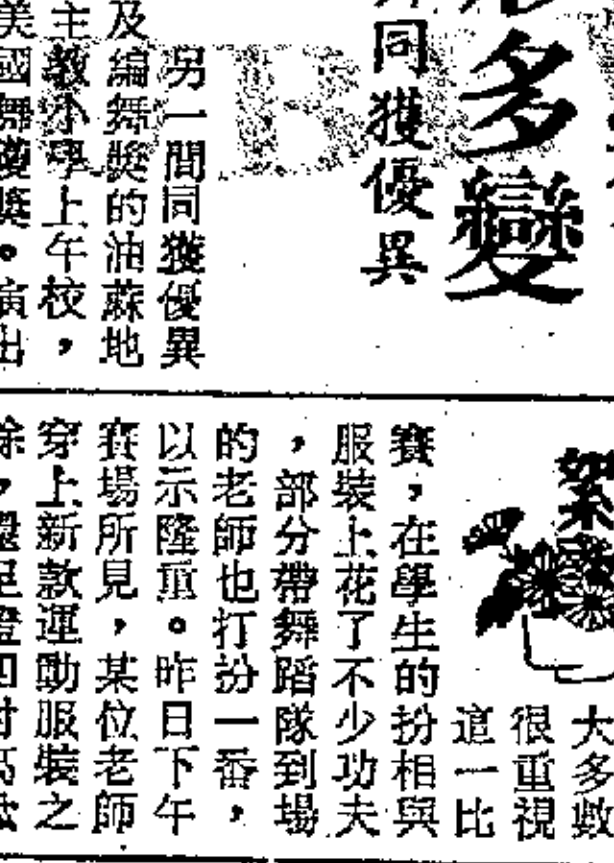 多變
同獲優異
另一間同獲優異
及編舞獎的油蔴地
主教小學上午校，
美國舞獲獎。演出
大多數
很重視
這一比
賽，在學生的扮相與
服裝上花了不少功夫
，部分帶舞蹈隊到場
的老師也打扮一番，
以示隆重。昨日下午
賽場所見，某位老師
穿上新款運動服裝之